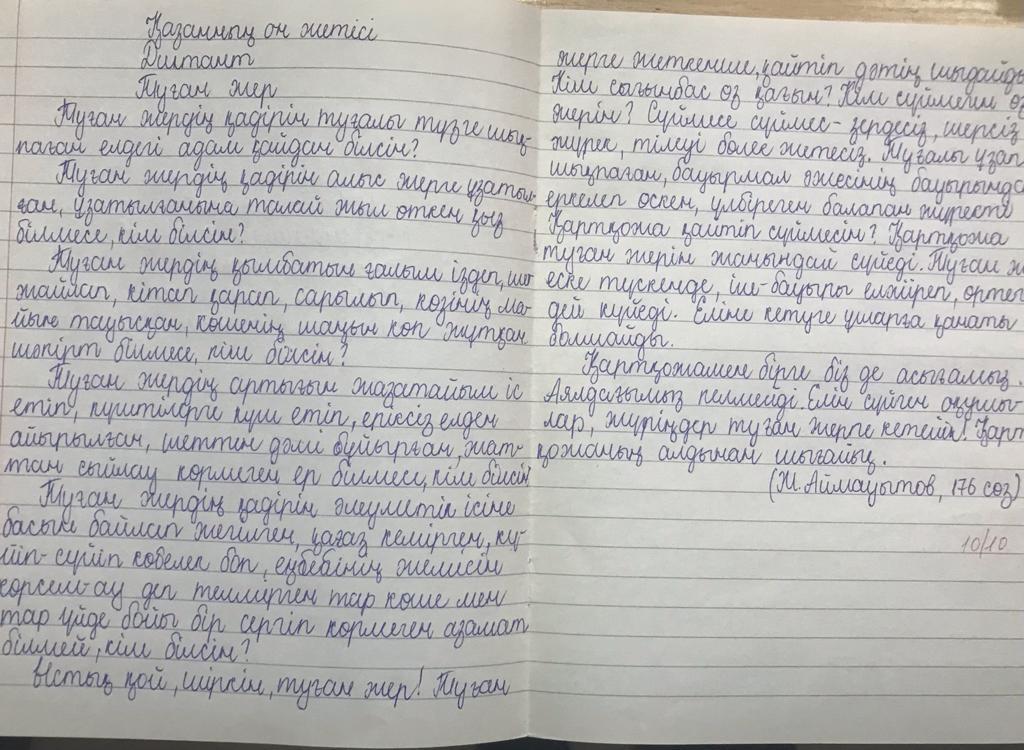 Қазанның он жетісі
Диктант
Туған жер
Туған жердің қадірін туғалы түзге шық-
паған елдегі адам қайдан білсін?
Туған жердің қадірін алыс жерге ұзатыл-
ған, ұзатылғанына талай жыл өткен қыз
білмесе, кім білсін?
Туған жердің қымбатын ғалым іздеп,
жайлап, кітап қарап, сарылып, көзінің ма-
йын тауысқан, көшенің шаңын көп жұтқан
шәкірт білмесе, кім білсін?
Туған жердің артығын жазатайым іс
етіп, күштілерге күш етіп, еріксіз елден
айырылған, шеттің дәмі бұйырған, жат-
тан сыйлау көрмеген ер білмесе, кім білсін
Туған жердің қадірін әлеуметтік ісіне
басын байлап жегілген, қағаз кемірген, кү-
йіп-сүйіп көбелек боп, еңбебінің жемісін
көрсем-ау деп телмірген тар көше мен
тар үйде бойы бір сергіп көрмеген азамат
білмей, кім білсін?
Ыстық қой, шіркін, туған жер! Туған
жерге жеткенше, қайтіп дәтің шыдайды
Кім сағынбас өз қағын? Кім сүймейін өз
жерін? Сүймесе сүймес- зердесіз, шерсіз
жүрек, тілеуі бөлек жетесіз. Туғалы ұзап
шықпаған, бауырмал әжесінің бауырында
еркелеп өскен, үлбіреген балапан жүректі
Қартқожа қайтіп сүймесін? Қартқожа
туған жерін жанындай сүйеді. Туған ж
еске түскенде, іш-бауыры елжіреп, өртен
дей күйеді. Еліне кетуге ұшарға қанаты
болмайды.
Қартқожамен бірге біз де асығамыз.
Аялдағымыз келмейді. Елін сүйген оқушы-
лар, жүріңдер туған жерге кетейік! Қарт
қожаның алдынан шығайық.
(Ж. Аймауытов, 176 сөз)
10/10